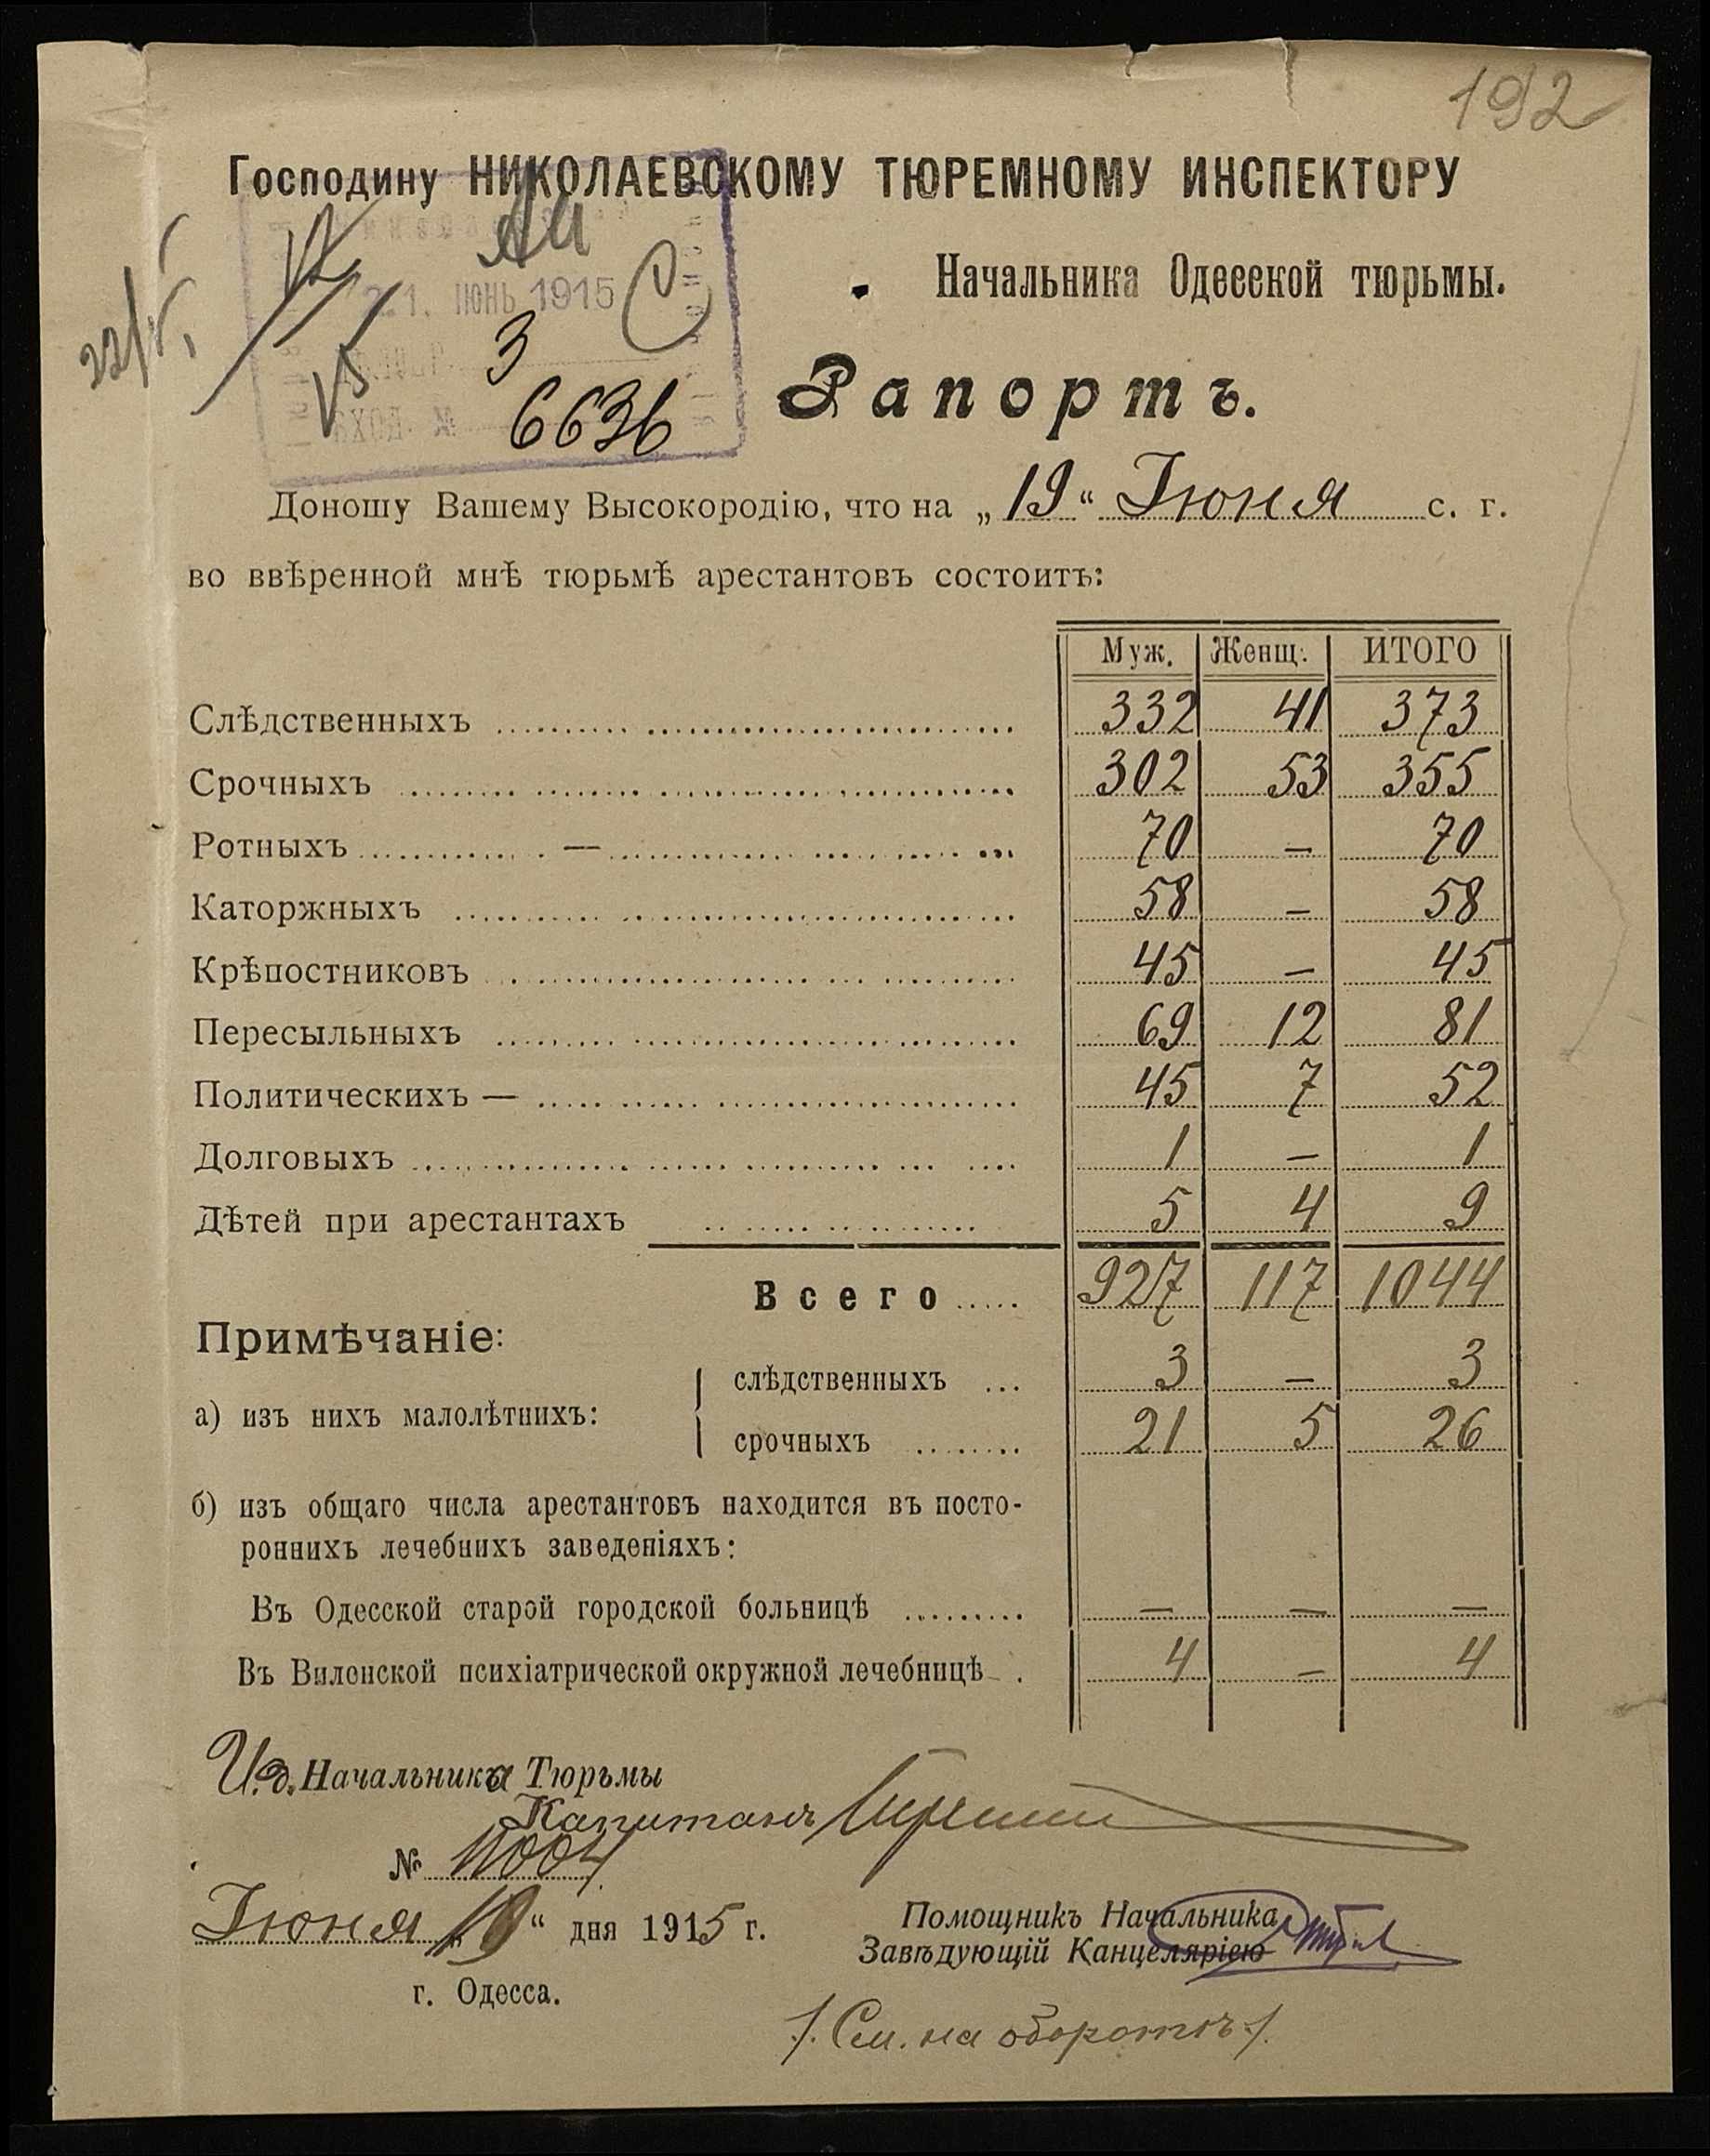 192
Господину НИКОЛАЕВСКОМУ ТЮРЕМНОМУ ИНСПЕКТОРУ
Начальника Одесской тюрьмы.
21. ІЮНЬ 1915
3
6636
Рапортъ.
Доношу Вашему Высокородію, что на „19“ Іюня с. г.
во ввѣренной мнѣ тюрьмѣ арестантовъ состоитъ:
Муж. Женщ. ИТОГО
Слѣдственныхъ 332 41 373
Срочныхъ 302 53 355
Ротныхъ — 70 — 70
Каторжныхъ 58 — 58
Крѣпостниковъ 45 — 45
Пересыльныхъ 69 12 81
Политическихъ — 45 7 52
Долговыхъ 1 — 1
Дѣтей при арестантахъ 5 4 9
Всего 927 117 1044
Примѣчаніе:
а) изъ нихъ малолѣтнихъ: слѣдственныхъ 3 — 3
срочныхъ 21 5 26
б) изъ общаго числа арестантовъ находится въ посто-
роннихъ лечебныхъ заведеніяхъ:
Въ Одесской старой городской больницѣ — — —
Въ Виленской психіатрической окружной лечебницѣ 4 — 4
И.д. Начальника Тюрьмы
Капитанъ
№ 11004
Іюня „19“ дня 1915 г.
г. Одесса.
Помощникъ Начальника
Завѣдующій Канцеляріею
/. См. на оборотѣ /.